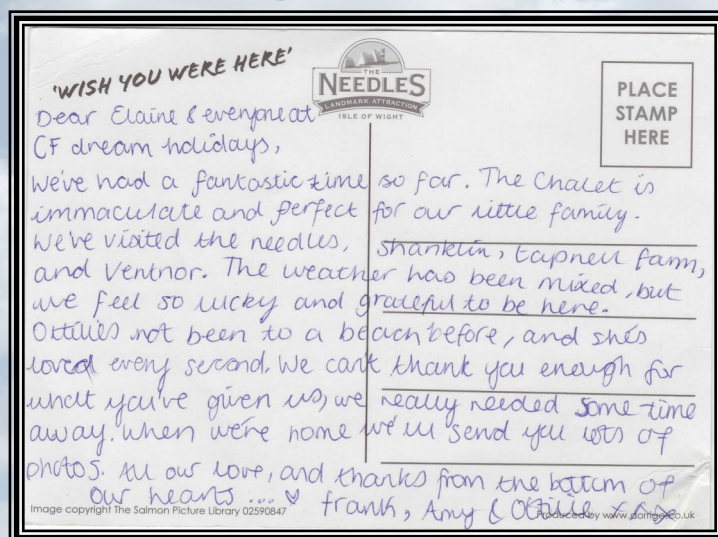 'WISH YOU WERE HERE'
THE
NEEDLES
LANDMARK ATTRACTION
ISLE OF WIGHT
PLACE
STAMP
HERE
Dear Elaine & everyone at
CF dream holidays,
We've had a fantastic time so far. The Chalet is
immaculate and perfect for our little family.
We've visited the needles, Shanklin, tapnell farm,
and Ventnor. The weather has been mixed, but
we feel so lucky and grateful to be here.
Ottilies not been to a beach before, and she's
loved every second. We can't thank you enough for
what you've given us, we really needed some time
away. When we're home we'll send you lots of
photos. All our love, and thanks from the bottom of
our hearts ... ♥ frank, Amy & Ottilie xxx
Image copyright The Salmon Picture Library 02590847
Produced by www.dorrigo.co.uk